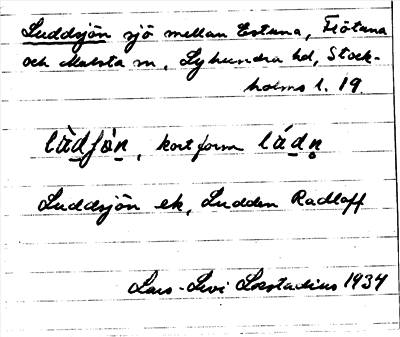 Luddsjön sjö mellan Estuna, Frötuna
och Malsta sn, Lyhundra hd, Stock-
holms l. 19
kortform
Luddsjön ek, Ludden Radloff
Lars-Levi Læstadius 1934